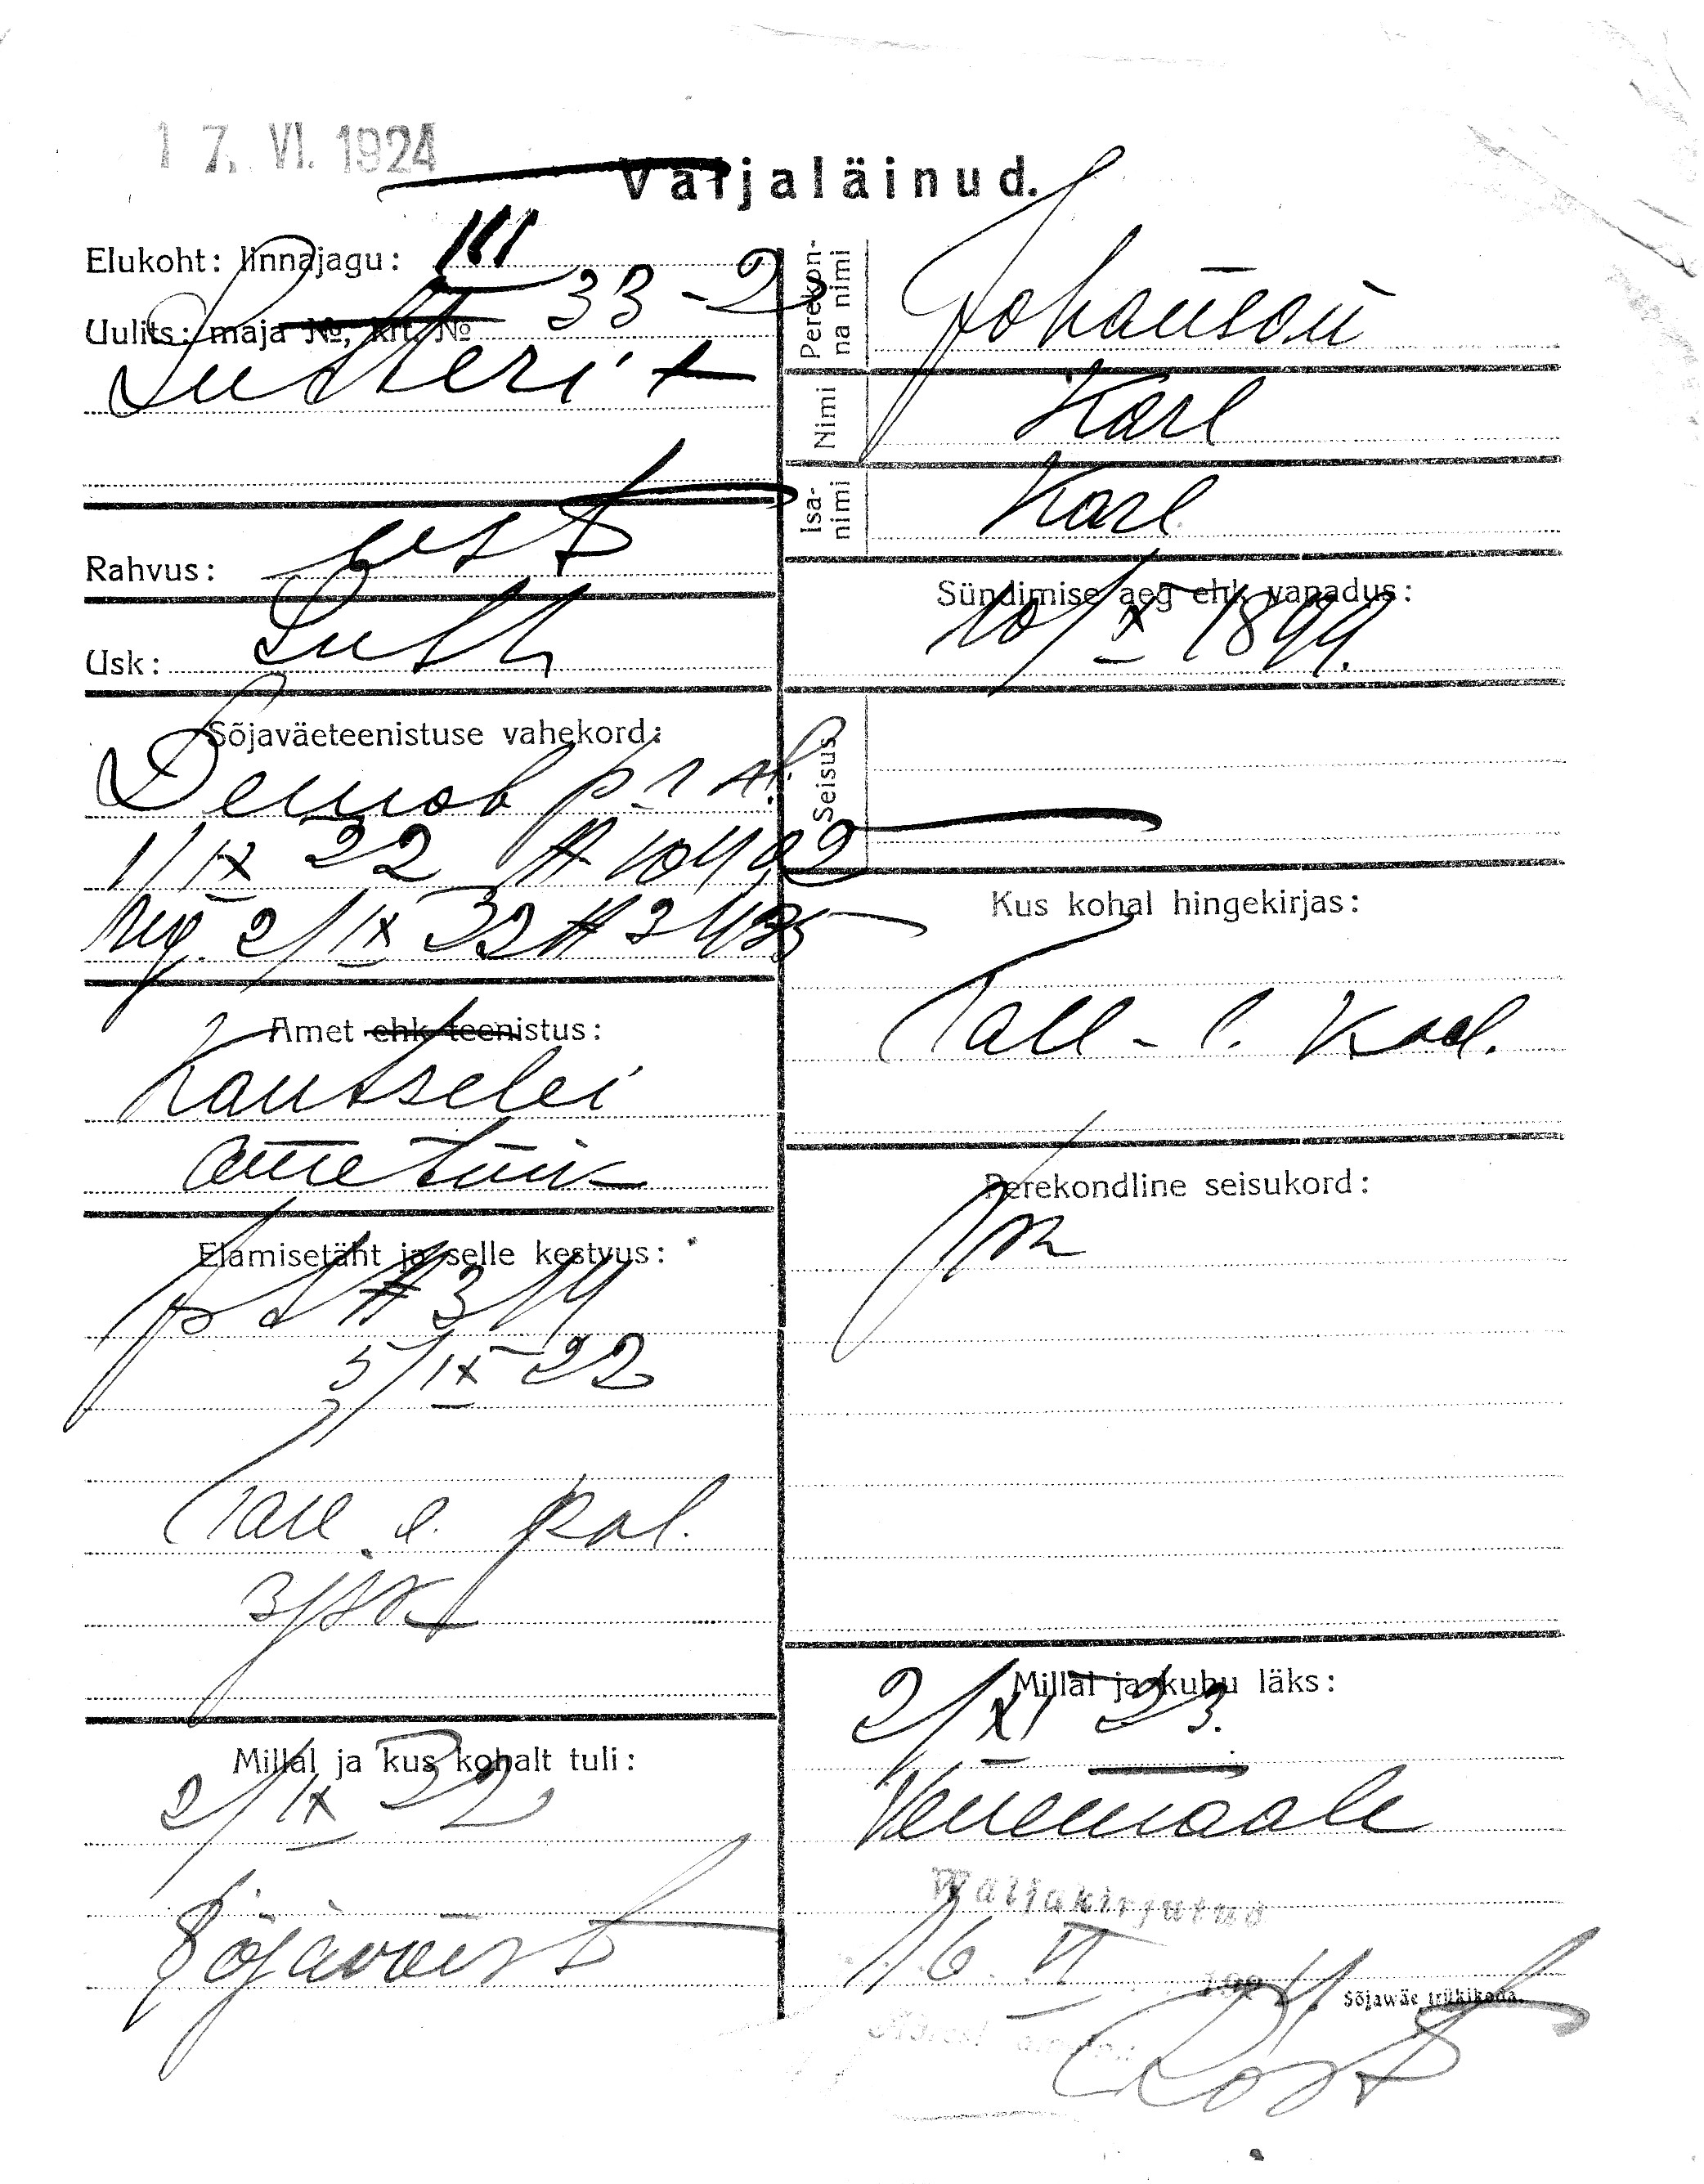 17. VI. 1924
Väljaläinud.
Elukoht: linnajagu: III
Uulits: maja №, krt. № 33-2
Lutheri t
Rahvus: eest
Usk: Luth
Sõjaväeteenistuse vahekord:
Demob
1/IX 22 №
reg. 2/IX 22 №
Amet ehk teenistus:
Kantselei
ametnik
Elamisetäht ja selle kestvus:
№ 314
5/IX 22
Tall. l. pol.
3 jsk
Millal ja kus kohalt tuli:
2/IX 22
Sõjaväest
Perekon-
na nimi
Johanson
Nimi
Karl
Isa-
nimi
Karl
Sündimise aeg ehk vanadus:
10/X 1899.
Seisus
Kus kohal hingekirjas:
Tall - l. kod.
Perekondline seisukord:
Millal ja kuhu läks:
2/XI 23.
Venemaale
Wäljakirjutud
16. VI 1924
Sõjawäe trükikoda.